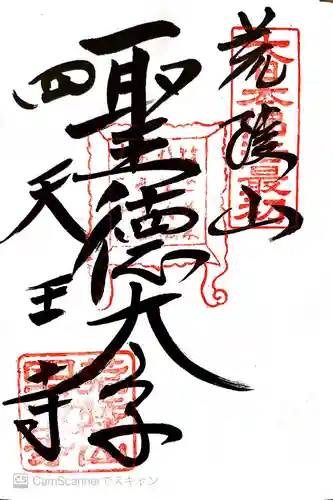 荒陵山
聖徳太子
四天王寺
大日本佛法最初
CamScannerでスキャン